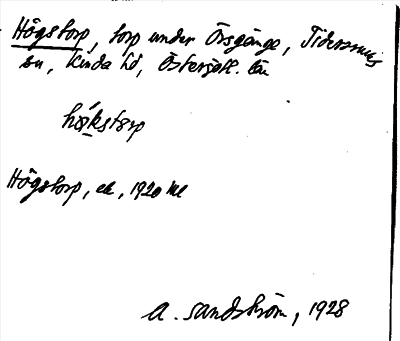 Högstorp, torp under Örsgänge, Tidersrums
sn, Kinda hd, Östergötl. län
hǫ́kstorp
Högstorp, ek, 1920 ml
A. Sandström, 1928